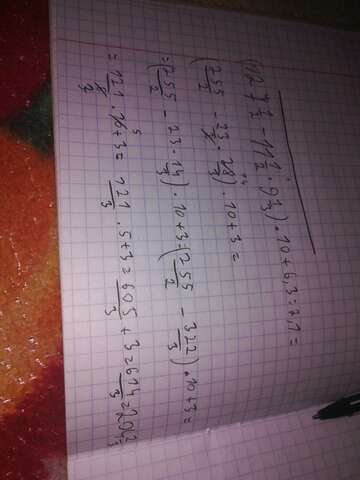 (127 1/2 - 11 1/2 · 9 1/3) · 10 + 6,3 : 2,1 =
(255/2 - 23/2 · 28/3) · 10 + 3 =
= (255/2 - 23 · 14/3) · 10 + 3 = (255/2 - 322/3) · 10 + 3 =
· 10 + 3 = 121/3 · 5 + 3 = 605/3 + 3 = 614/3 =